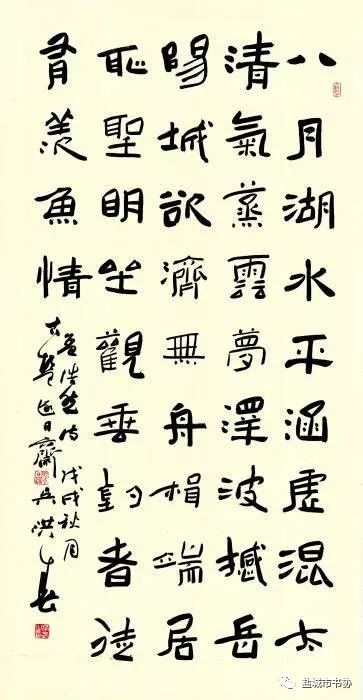 八月湖水平涵虛混太
清氣蒸雲夢澤波撼岳
陽城欲濟無舟楫端居
恥聖明坐觀垂釣者徒
有羨魚情
孟浩然诗戊戌秋月
古 日齋吴洪春
盐城市书协